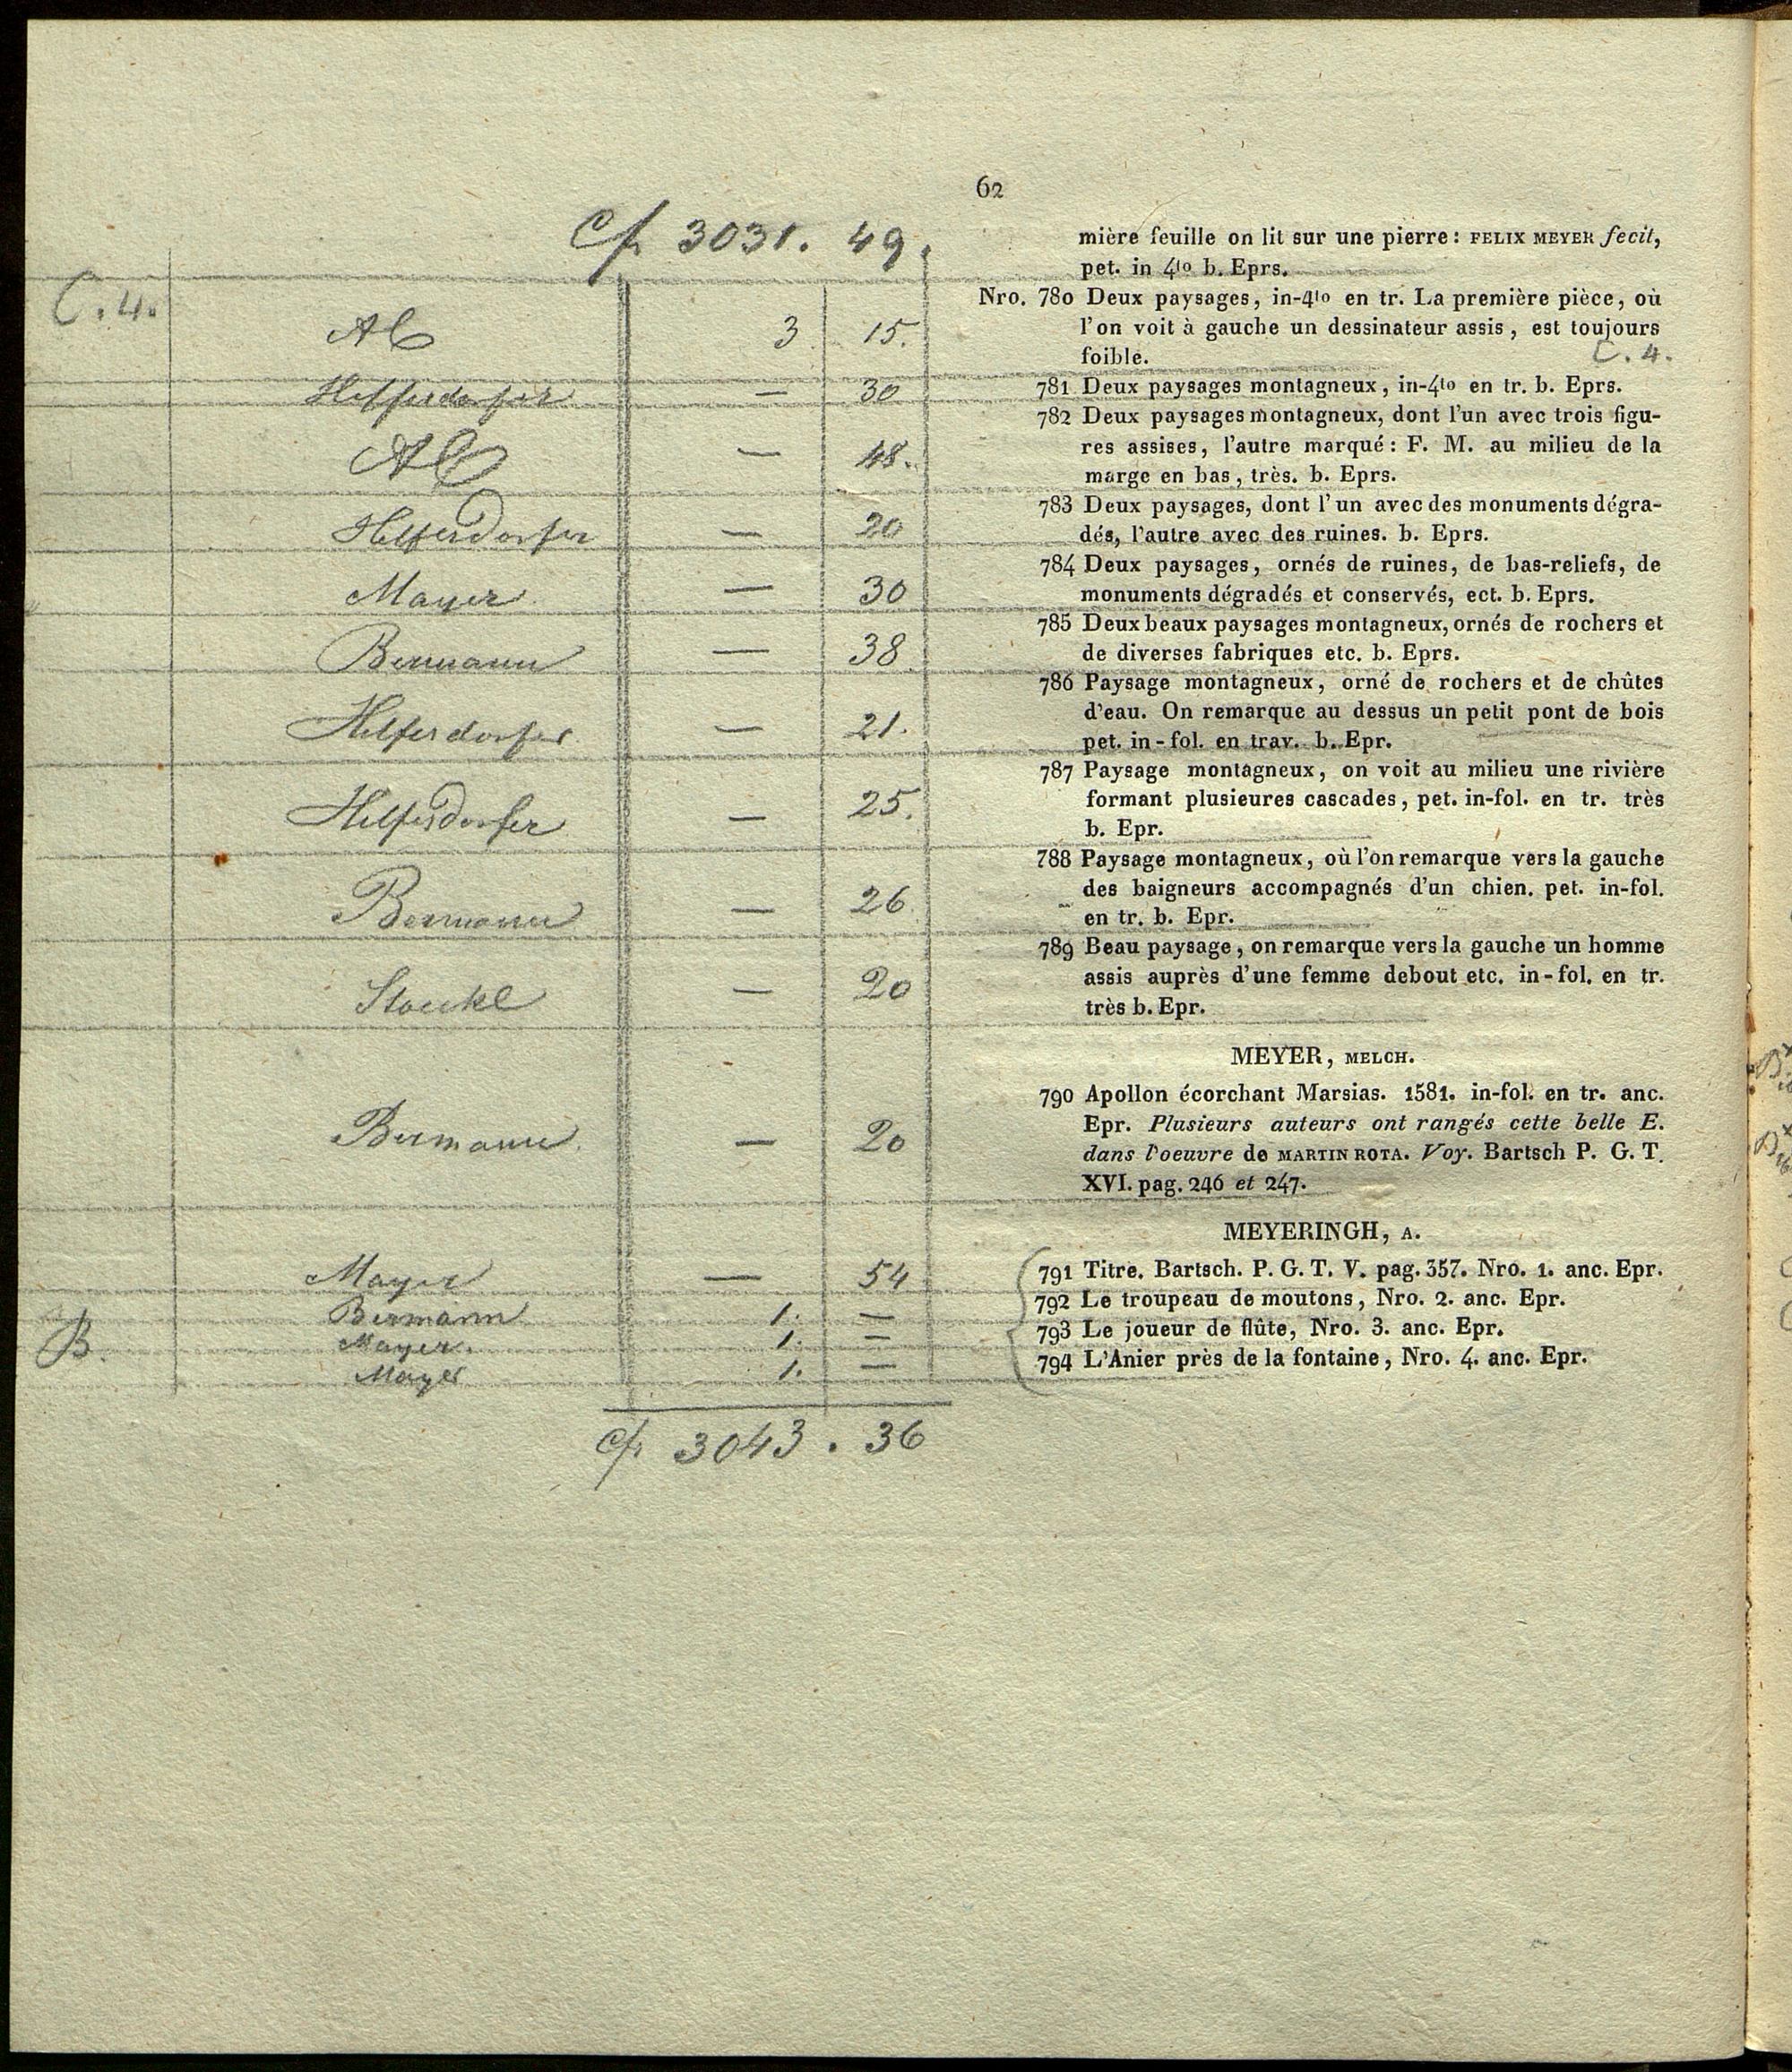 62
Cf. 3031. 49.
C. 4.
AC 3 15.
Helfersdorfer — 30
AC — 48.
Helfersdorfer — 20
Mayer — 30
Bermann — 38
Helfersdorfer — 21.
Helfersdorfer — 25.
Bermann — 26
Stoeckl — 20
Bermann — 20
Mayer — 54
Bermann 1. —
B. Mayer. 1. —
Mayer 1. —
Cf. 3043. 36
mière feuille on lit sur une pierre: FELIX MEYER fecit,
pet. in 4to b. Eprs.
Nro. 780 Deux paysages, in-4to en tr. La première pièce, où
l'on voit à gauche un dessinateur assis, est toujours
foible. C. 4.
781 Deux paysages montagneux, in-4to en tr. b. Eprs.
782 Deux paysages montagneux, dont l'un avec trois figu-
res assises, l'autre marqué: F. M. au milieu de la
marge en bas, très. b. Eprs.
783 Deux paysages, dont l'un avec des monuments dégra-
dés, l'autre avec des ruines. b. Eprs.
784 Deux paysages, ornés de ruines, de bas-reliefs, de
monuments dégradés et conservés, ect. b. Eprs.
785 Deux beaux paysages montagneux, ornés de rochers et
de diverses fabriques etc. b. Eprs.
786 Paysage montagneux, orné de rochers et de chûtes
d'eau. On remarque au dessus un petit pont de bois
pet. in-fol. en trav. b. Epr.
787 Paysage montagneux, on voit au milieu une rivière
formant plusieures cascades, pet. in-fol. en tr. très
b. Epr.
788 Paysage montagneux, où l'on remarque vers la gauche
des baigneurs accompagnés d'un chien. pet. in-fol.
en tr. b. Epr.
789 Beau paysage, on remarque vers la gauche un homme
assis auprès d'une femme debout etc. in-fol. en tr.
très b. Epr.
MEYER, MELCH.
790 Apollon écorchant Marsias. 1581. in-fol. en tr. anc.
Epr. Plusieurs auteurs ont rangés cette belle E.
dans l'oeuvre de MARTIN ROTA. Voy. Bartsch P. G. T.
XVI. pag. 246 et 247.
MEYERINGH, A.
791 Titre. Bartsch. P. G. T. V. pag. 357. Nro. 1. anc. Epr.
792 Le troupeau de moutons, Nro. 2. anc. Epr.
793 Le joueur de flûte, Nro. 3. anc. Epr.
794 L'Anier près de la fontaine, Nro. 4. anc. Epr.